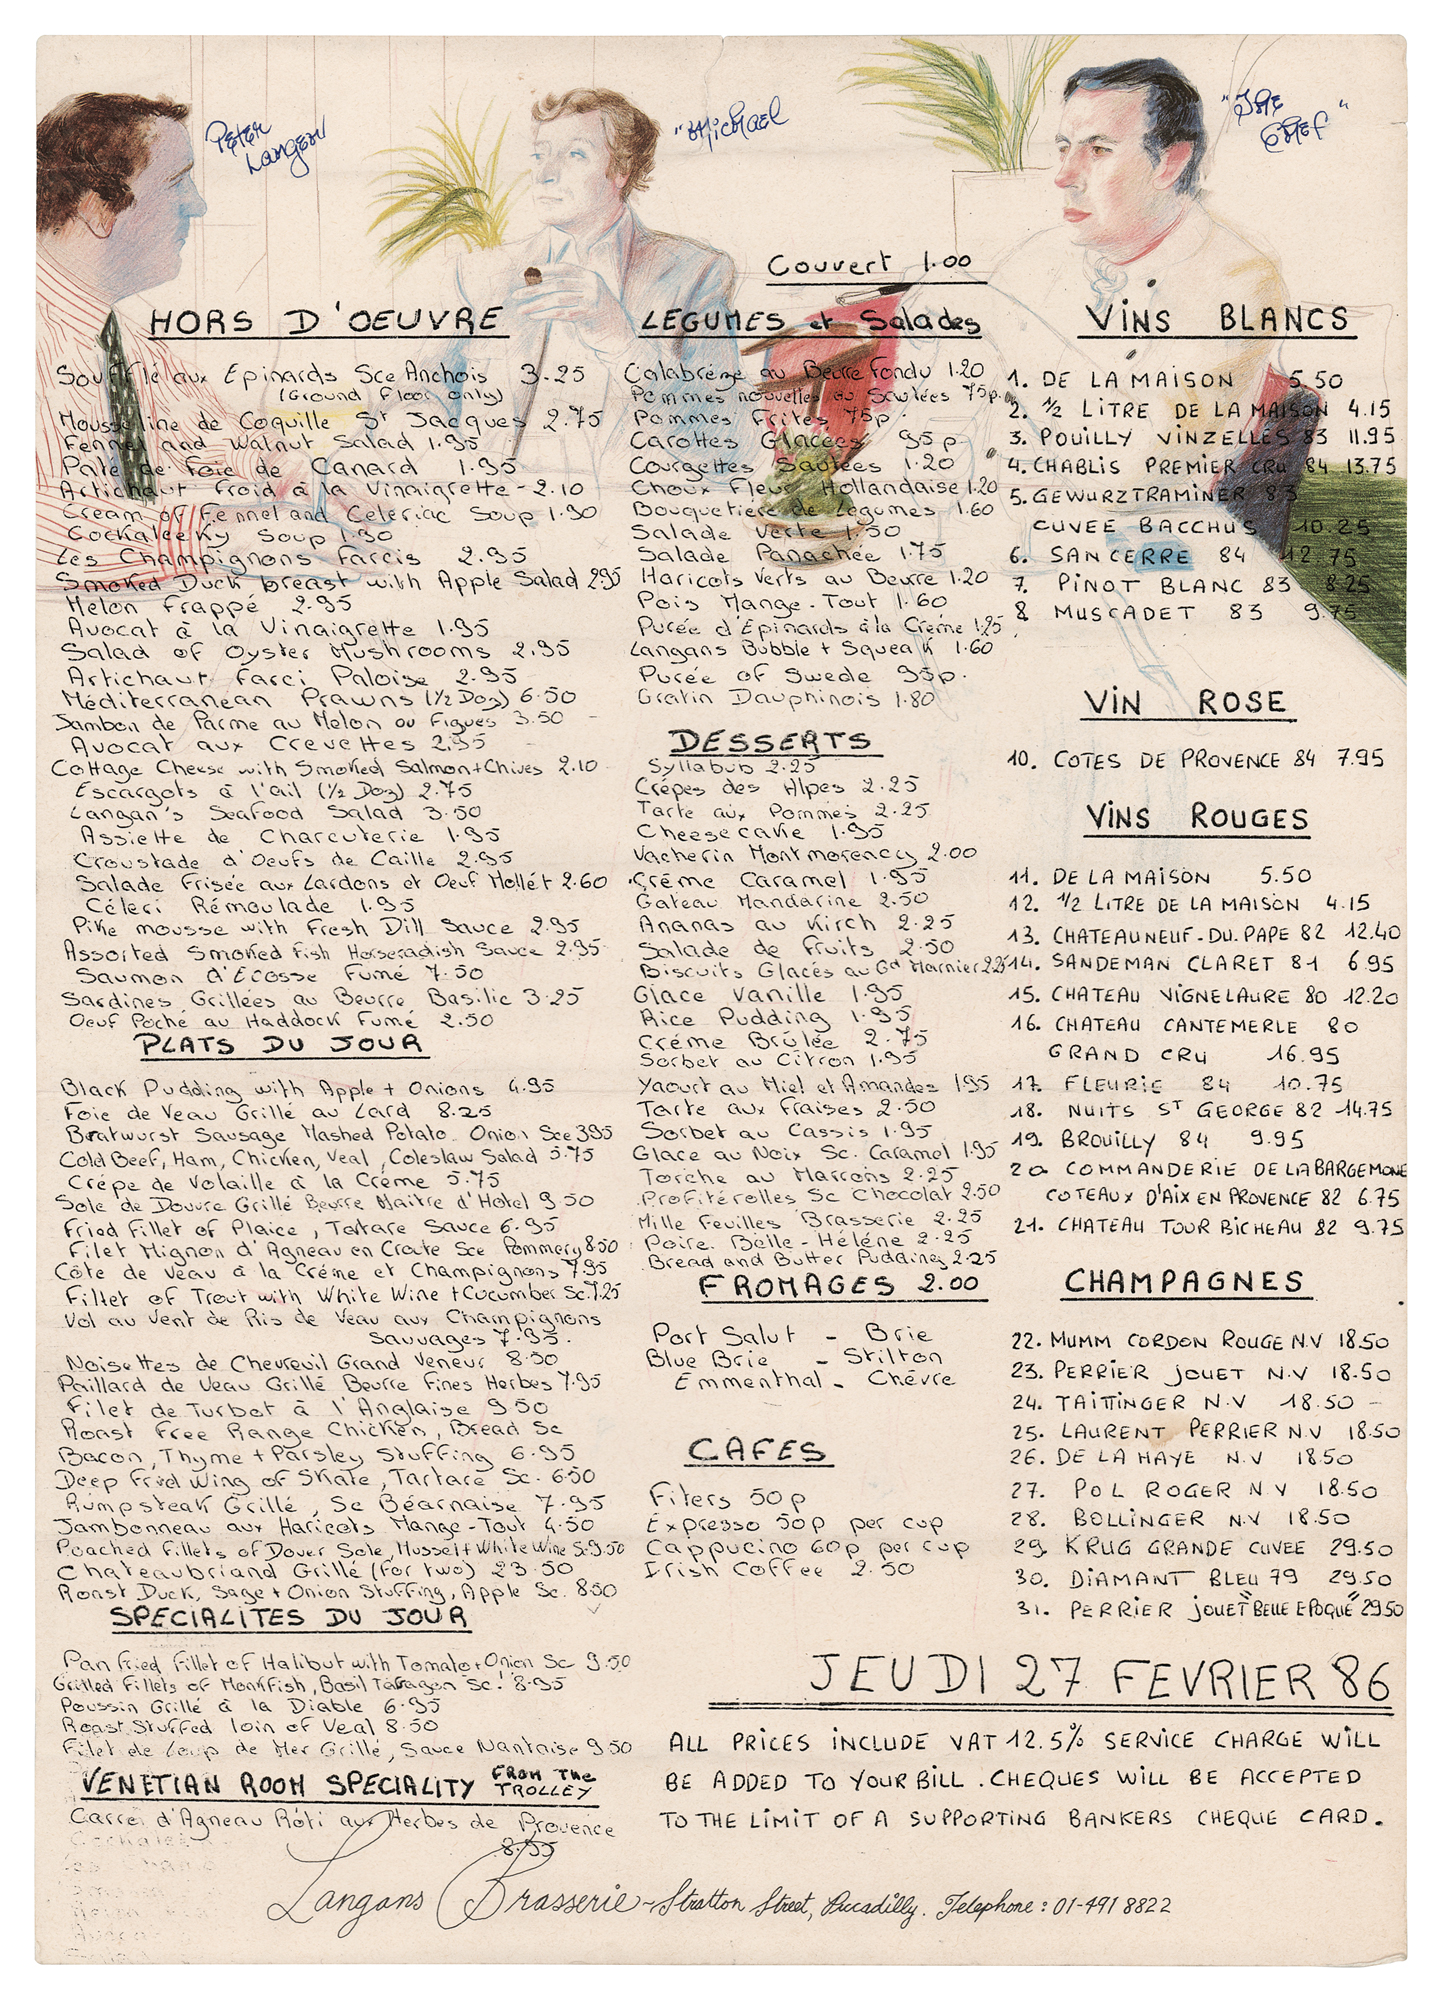 Peter
Langan
"Michael
"The
Chef"
Couvert 1.00
HORS D'OEUVRE
Soufflé aux Epinards Sce Anchois 3.25
(Ground floor only)
Mousseline de Coquille St Jacques 2.75
Fennel and Walnut Salad 1.95
Pate de Foie de Canard 1.95
Artichaut froid à la Vinaigrette - 2.10
Cream of Fennel and Celeriac Soup 1.90
Cockaleeky Soup 1.30
Les Champignons Farcis 2.95
Smoked Duck breast with Apple Salad 2.95
Melon Frappé 2.95
Avocat à la Vinaigrette 1.95
Salad of Oyster Mushrooms 2.95
Artichaut Farci Paloise 2.95
Méditerranean Prawns (1/2 Doz) 6.50
Jambon de Parme au Melon ou Figues 3.50
Avocat aux Crevettes 2.95
Cottage Cheese with Smoked Salmon + Chives 2.10
Escargots à l'ail (1/2 Doz) 2.75
Langan's Seafood Salad 3.50
Assiette de Charcuterie 1.95
Croustade d'Oeufs de Caille 2.95
Salade Frisée aux Lardons et Oeuf Mollét 2.60
Céleri Rémoulade 1.95
Pike mousse with Fresh Dill Sauce 2.95
Assorted Smoked Fish Horseradish Sauce 2.95
Saumon d'Ecosse Fumé 7.50
Sardines Grillées au Beurre Basilic 3.25
Oeuf Poché au Haddock Fumé 2.50
PLATS DU JOUR
Black Pudding with Apple + Onions 4.95
Foie de Veau Grillé au Lard 8.25
Bratwurst Sausage Mashed Potato Onion Sce 3.95
Cold Beef, Ham, Chicken, Veal, Coleslaw Salad 5.75
Crépe de Volaille à la Créme 5.75
Sole de Douvre Grillé Beurre Maitre d'Hotel 9.50
Fried Fillet of Plaice, Tartare Sauce 6.95
Filet Mignon d'Agneau en Croute Sce Pommery 8.50
Côte de Veau à la Créme et Champignons 7.95
Fillet of Trout with White Wine + Cucumber Sc. 7.25
Vol au Vent de Ris de Veau aux Champignons
Sauvages 7.95.
Noisettes de Chevreuil Grand Veneur 8.50
Paillard de Veau Grillé Beurre Fines Herbes 7.95
Filet de Turbot à l'Anglaise 9.50
Roast Free Range Chicken, Bread Sc
Bacon, Thyme + Parsley Stuffing 6.95
Deep Fried Wing of Skate, Tartare Sc. 6.50
Rumpsteak Grillé, Sc Béarnaise 7.95
Jambonneau aux Haricots Mange-Tout 4.50
Poached Fillets of Dover Sole, Mussel + White Wine Sc 9.50
Chateaubriand Grillé (for two) 23.50
Roast Duck, Sage + Onion Stuffing, Apple Sc. 8.50
SPECIALITES DU JOUR
Pan Fried Fillet of Halibut with Tomato + Onion Sc 9.50
Grilled Fillets of Monkfish, Basil Tarragon Sc. 8.95
Poussin Grillé à la Diable 6.95
Roast Stuffed loin of Veal 8.50
Filet de Loup de Mer Grillé, Sauce Nantaise 9.50
VENETIAN ROOM SPECIALITY FROM THE TROLLEY
Carré d'Agneau Rôti aux Herbes de Provence
8.95
LEGUMES et Salades
Calabréze au Beurre Fondu 1.20
Pommes nouvelles ou Sautées 75p.
Pommes Frites 75p.
Carottes Glacées 95p
Courgettes Sautées 1.20
Choux Fleur Hollandaise 1.20
Bouquetiere de Légumes 1.60
Salade Verte 1.50
Salade Panachée 1.75
Haricots Verts au Beurre 1.20
Pois Mange-Tout 1.60
Purée d'Epinards à la Créme 1.25
Langans Bubble + Squeak 1.60
Purée of Swede 95p.
Gratin Dauphinois 1.80
DESSERTS
Syllabub 2.25
Crépes des Alpes 2.25
Tarte aux Pommes 2.25
Cheesecake 1.95
Vacherin Montmorency 2.00
Créme Caramel 1.95
Gateau Mandarine 2.50
Ananas au Kirch 2.25
Salade de Fruits 2.50
Biscuits Glacés au Gd Marnier 2.25
Glace Vanille 1.95
Rice Pudding 1.95
Créme Brûlée 2.75
Sorbet au Citron 1.95
Yaourt au Miel et Amandes 1.95
Tarte aux Fraises 2.50
Sorbet au Cassis 1.95
Glace au Noix Sc. Caramel 1.95
Torche au Marrons 2.25
Profitérolles Sc Chocolat 2.50
Mille Feuilles Brasserie 2.25
Poire Belle-Héléne 2.25
Bread and Butter Pudding 2.25
FROMAGES 2.00
Port Salut - Brie
Blue Brie - Stilton
Emmenthal - Chévre
CAFES
Filters 50p
Expresso 50p per cup
Cappucino 60p per cup
Irish Coffee 2.50
VINS BLANCS
1. DE LA MAISON 5.50
2. 1/2 LITRE DE LA MAISON 4.15
3. POUILLY VINZELLES 83 11.95
4. CHABLIS PREMIER CRU 84 13.75
5. GEWURZTRAMINER 83
CUVEE BACCHUS 10.25
6. SANCERRE 84 12.75
7. PINOT BLANC 83 8.25
8. MUSCADET 83 9.75
VIN ROSE
10. COTES DE PROVENCE 84 7.95
VINS ROUGES
11. DE LA MAISON 5.50
12. 1/2 LITRE DE LA MAISON 4.15
13. CHATEAUNEUF-DU-PAPE 82 12.40
14. SANDEMAN CLARET 81 6.95
15. CHATEAU VIGNELAURE 80 12.20
16. CHATEAU CANTEMERLE 80
GRAND CRU 16.95
17. FLEURIE 84 10.75
18. NUITS ST GEORGE 82 14.75
19. BROUILLY 84 9.95
20 COMMANDERIE DE LA BARGEMONE
COTEAUX D'AIX EN PROVENCE 82 6.75
21. CHATEAU TOUR BICHEAU 82 9.75
CHAMPAGNES
22. MUMM CORDON ROUGE N.V 18.50
23. PERRIER JOUET N.V 18.50
24. TAITTINGER N.V 18.50
25. LAURENT PERRIER N.V 18.50
26. DE LA HAYE N.V 18.50
27. POL ROGER N V 18.50
28. BOLLINGER N.V 18.50
29. KRUG GRANDE CUVEE 29.50
30. DIAMANT BLEU 79 29.50
31. PERRIER JOUET "BELLE EPOQUE" 29.50
JEUDI 27 FEVRIER 86
ALL PRICES INCLUDE VAT 12.5% SERVICE CHARGE WILL
BE ADDED TO YOUR BILL. CHEQUES WILL BE ACCEPTED
TO THE LIMIT OF A SUPPORTING BANKERS CHEQUE CARD.
Langans Brasserie ~ Stratton Street, Piccadilly. Telephone: 01-491 8822